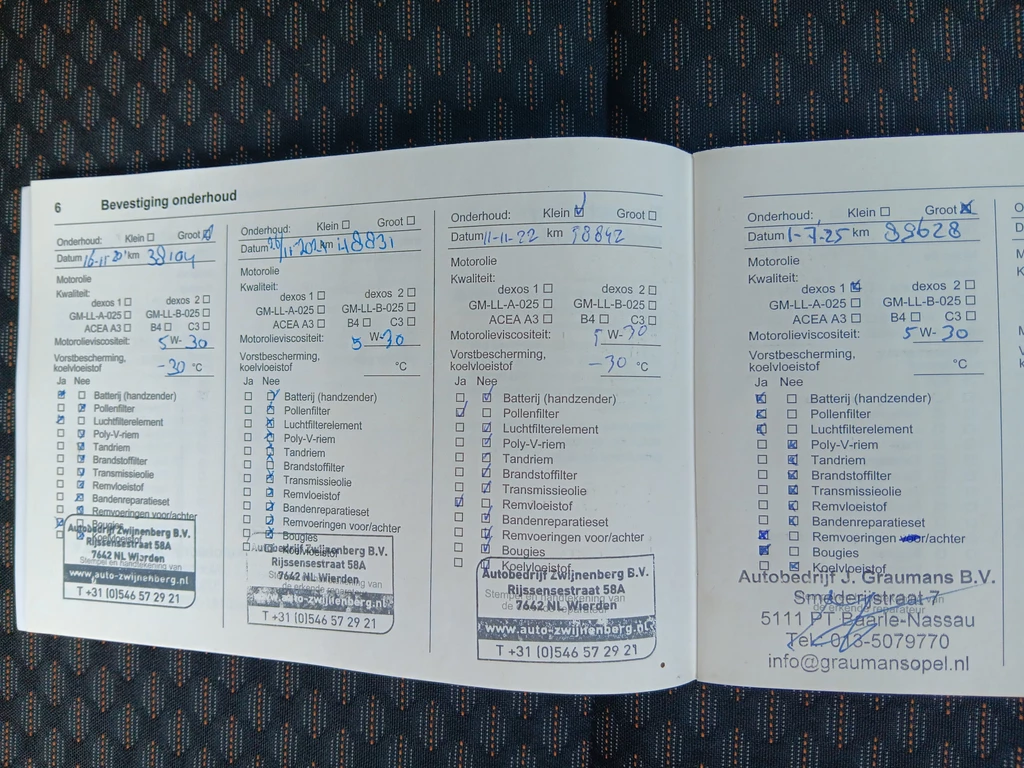 6 Bevestiging onderhoud
Onderhoud: Klein Groot
Datum 16-11-20 km 38104
Motorolie
Kwaliteit:
dexos 1 dexos 2
GM-LL-A-025 GM-LL-B-025
ACEA A3 B4 C3
Motorolieviscositeit:
5 W- 30
Vorstbescherming,
koelvloeistof -30 °C
Ja Nee
Batterij (handzender)
Pollenfilter
Luchtfilterelement
Poly-V-riem
Tandriem
Brandstoffilter
Transmissieolie
Remvloeistof
Bandenreparatieset
Remvoeringen voor/achter
Bougies
Koelvloeistof
Autobedrijf Zwijnenberg B.V.
Rijssensestraat 58A
7642 NL Wierden
Stempel en handtekening van
www.auto-zwijnenberg.nl
T +31 (0)546 57 29 21
Onderhoud: Klein Groot
Datum /11 2021 km 48831
Motorolie
Kwaliteit:
dexos 1 dexos 2
GM-LL-A-025 GM-LL-B-025
ACEA A3 B4 C3
Motorolieviscositeit:
5 W-30
Vorstbescherming,
koelvloeistof °C
Ja Nee
Batterij (handzender)
Pollenfilter
Luchtfilterelement
Poly-V-riem
Tandriem
Brandstoffilter
Transmissieolie
Remvloeistof
Bandenreparatieset
Remvoeringen voor/achter
Bougies
Koelvloeistof
Autobedrijf Zwijnenberg B.V.
Rijssensestraat 58A
7642 NL Wierden
Stempel en handtekening van
de erkende reparateur
www.auto-zwijnenberg.nl
T +31 (0)546 57 29 21
Onderhoud: Klein Groot
Datum 11-11-22 km 58842
Motorolie
Kwaliteit:
dexos 1 dexos 2
GM-LL-A-025 GM-LL-B-025
ACEA A3 B4 C3
Motorolieviscositeit:
5 W-30
Vorstbescherming,
koelvloeistof -30 °C
Ja Nee
Batterij (handzender)
Pollenfilter
Luchtfilterelement
Poly-V-riem
Tandriem
Brandstoffilter
Transmissieolie
Remvloeistof
Bandenreparatieset
Remvoeringen voor/achter
Bougies
Koelvloeistof
Autobedrijf Zwijnenberg B.V.
Rijssensestraat 58A
Stempel en handtekening van
7642 NL Wierden
de erkende reparateur
www.auto-zwijnenberg.nl
T +31 (0)546 57 29 21
Onderhoud: Klein Groot
Datum 1-7-25 km 89628
Motorolie
Kwaliteit:
dexos 1 dexos 2
GM-LL-A-025 GM-LL-B-025
ACEA A3 B4 C3
Motorolieviscositeit:
5 W- 30
Vorstbescherming,
koelvloeistof °C
Ja Nee
Batterij (handzender)
Pollenfilter
Luchtfilterelement
Poly-V-riem
Tandriem
Brandstoffilter
Transmissieolie
Remvloeistof
Bandenreparatieset
Remvoeringen voor/achter
Bougies
Koelvloeistof
Autobedrijf J. Graumans B.V.
Smederijstraat 7
de erkende reparateur
5111 PT Baarle-Nassau
Tel. 013-5079770
info@graumansopel.nl